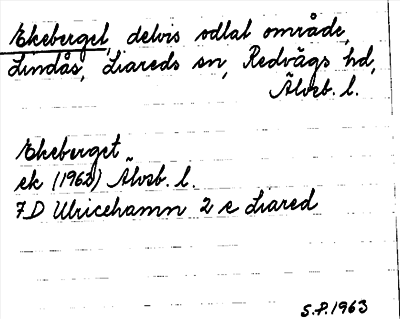 Ekeberget, delvis odlat område,
Lindås, Liareds sn, Redvägs hd,
Älvsb. l.
Ekeberget
ek (1962) Älvsb. l.
7D Ulricehamn 2 c Liared
S.P. 1963